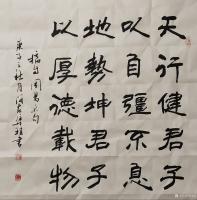 天行健君子
以自彊不息
地勢坤君子
以厚德載物
摘自周易句
庚子之秋月